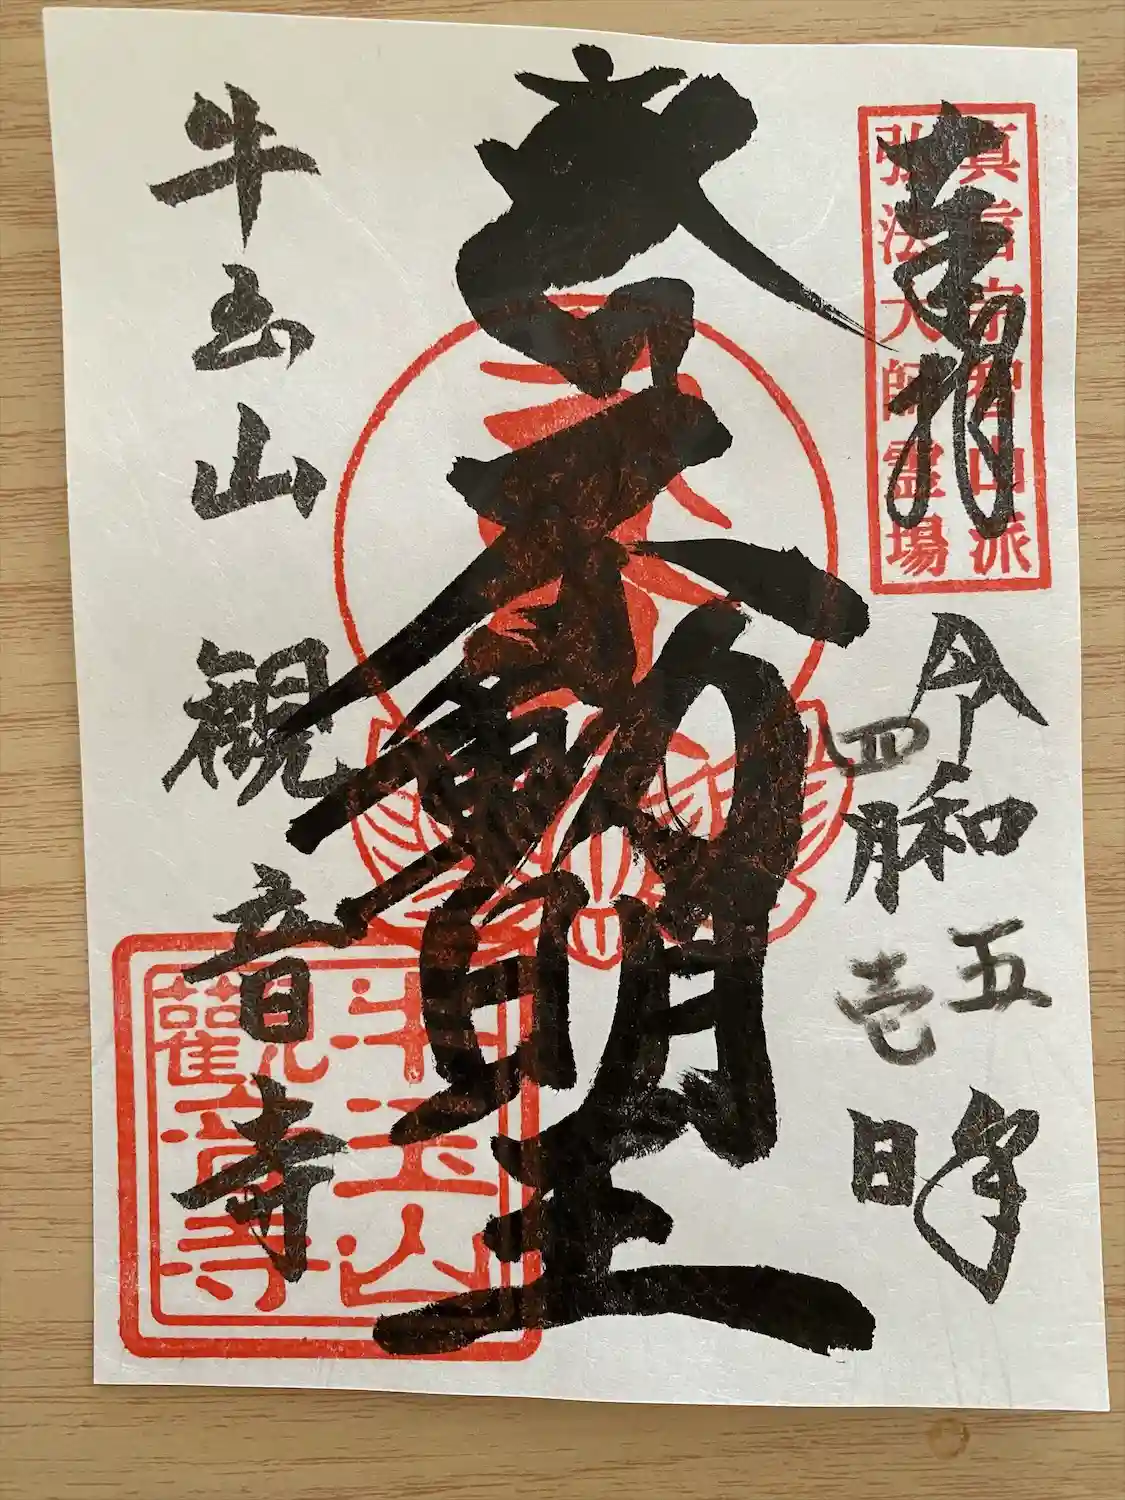 奉拝
真言宗智山派
弘法大師霊場
令和五年
四月壱日
不動明王
牛玉山 観音寺
牛玉山
觀音寺